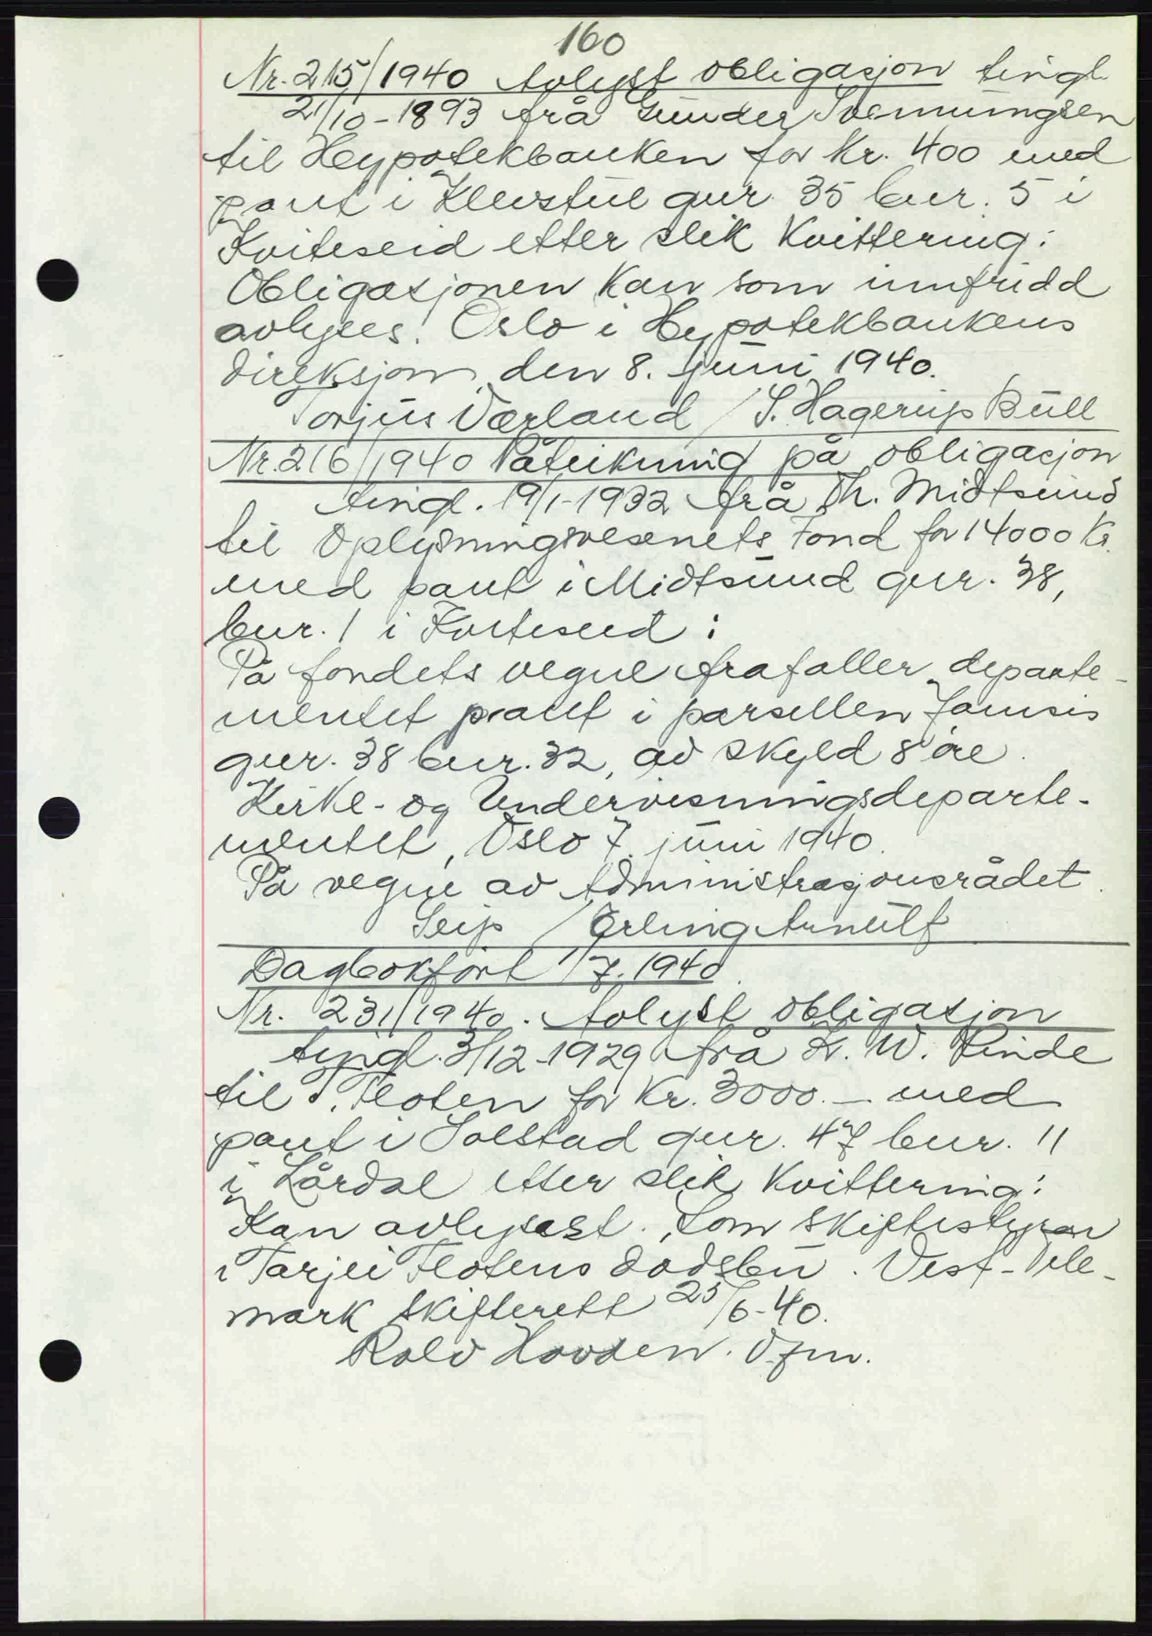 160
Nr. 215/1940 Avlyst obligasjon tingl.
21/10-1893 frå Gunder Svenningsen
til Hypotekbanken for kr. 400 med
pant i Kleivstul gnr. 35 bnr. 5 i
Kviteseid etter slik kvittering:
Obligasjonen kan som innfridd
avlyses. Oslo i Hypotekbankens
direksjon, den 8. juni 1940.
Torjus Værland / S. Hagerup Bull
Nr. 216/1940 Påteikning på obligasjon
tingl. 19/1-1932 frå Th. Midtsund
til Oplysningsvesenets Fond for 14000 kr.
med pant i Midtsund gnr. 38,
bnr. 1 i Kviteseid:
På fondets vegne frafaller departe-
mentet pant i parsellen
gnr. 38 bnr. 32, av skyld 8 øre.
Kirke- og Undervisningsdeparte-
mentet, Oslo 7. juni 1940.
På vegne av Administrasjonsrådet.
Seip / Erling Arnulf
Dagbokført 1/7. 1940.
Nr. 231/1940. Avlyst obligasjon
tingl. 3/12-1929 frå K. W. Rinde
til T. Floten for kr. 3000.- med
pant i Solstad gnr. 47 bnr. 11
i Lårdal etter slik kvittering:
Kan avlysast. Som skiftestyrar
i Tarjei Flotens dødsbu. Vest-Tele-
mark skifterett 25/6-40.
Rolv Hovden. Dfm.